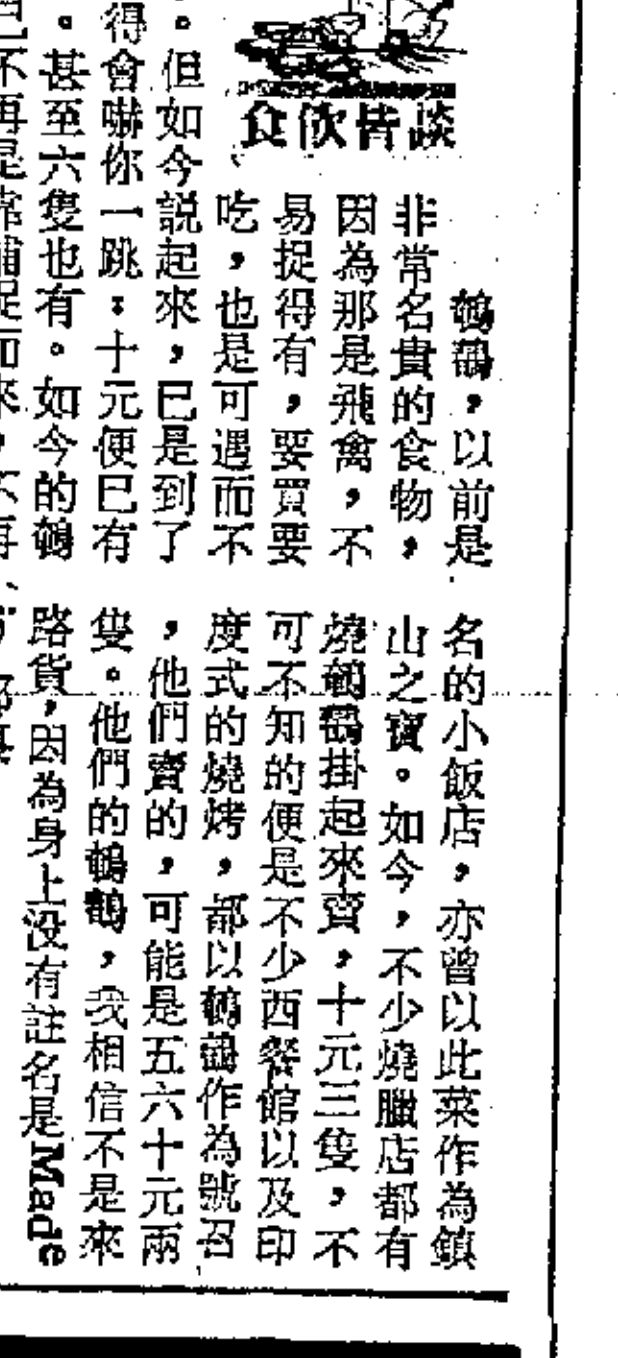 食飲皆談
鵪鶉，以前是
非常名貴的食物，
因為那是飛禽，不
易捉得有，要買要
吃，也是可遇而不
。但如今説起來，已是到了
得會嚇你一跳：十元便已有
。甚至六隻也有。如今的鵪
不再是
名的小飯店，亦曾以此菜作為鎮
山之寶。如今，不少燒臘店都有
燒鵪鶉掛起來賣，十元三隻，不
可不知的便是不少西餐館以及印
度式的燒烤，都以鵪鶉作為號召
，他們賣的，可能是五六十元兩
隻。他們的鵪鶉，我相信不是來
路貨，因為身上没有註名是Made